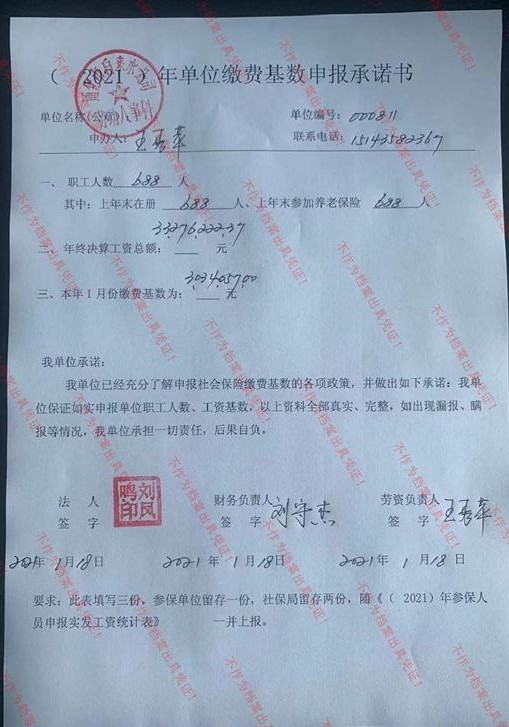 （ 2021 ）年单位缴费基数申报承诺书
单位名称(公章)： 单位编号：000811
申办人： 联系电话：15143582367
一、 职工人数 688 人
其中：上年末在册 688 人、上年末参加养老保险 688 人
33276222.37
二、年终决算工资总额： 元
3034057.00
三、本年1月份缴费基数为： 元
我单位承诺：
我单位已经充分了解申报社会保险缴费基数的各项政策，并做出如下承诺：我单
位保证如实申报单位职工人数、工资基数，以上资料全部真实、完整，如出现漏报、瞒
报等情况，我单位承担一切责任，后果自负。
法 人 财务负责人 劳资负责人
签 字 签 字 刘守杰 签 字
刘凤鸣印
2021年 1月18日 2021年 1月18日 2021年 1月18日
要求：此表填写三份，参保单位留存一份，社保局留存两份，随《（ 2021）年参保人
员申报实发工资统计表》 一并上报。
不作为档案出具凭证！